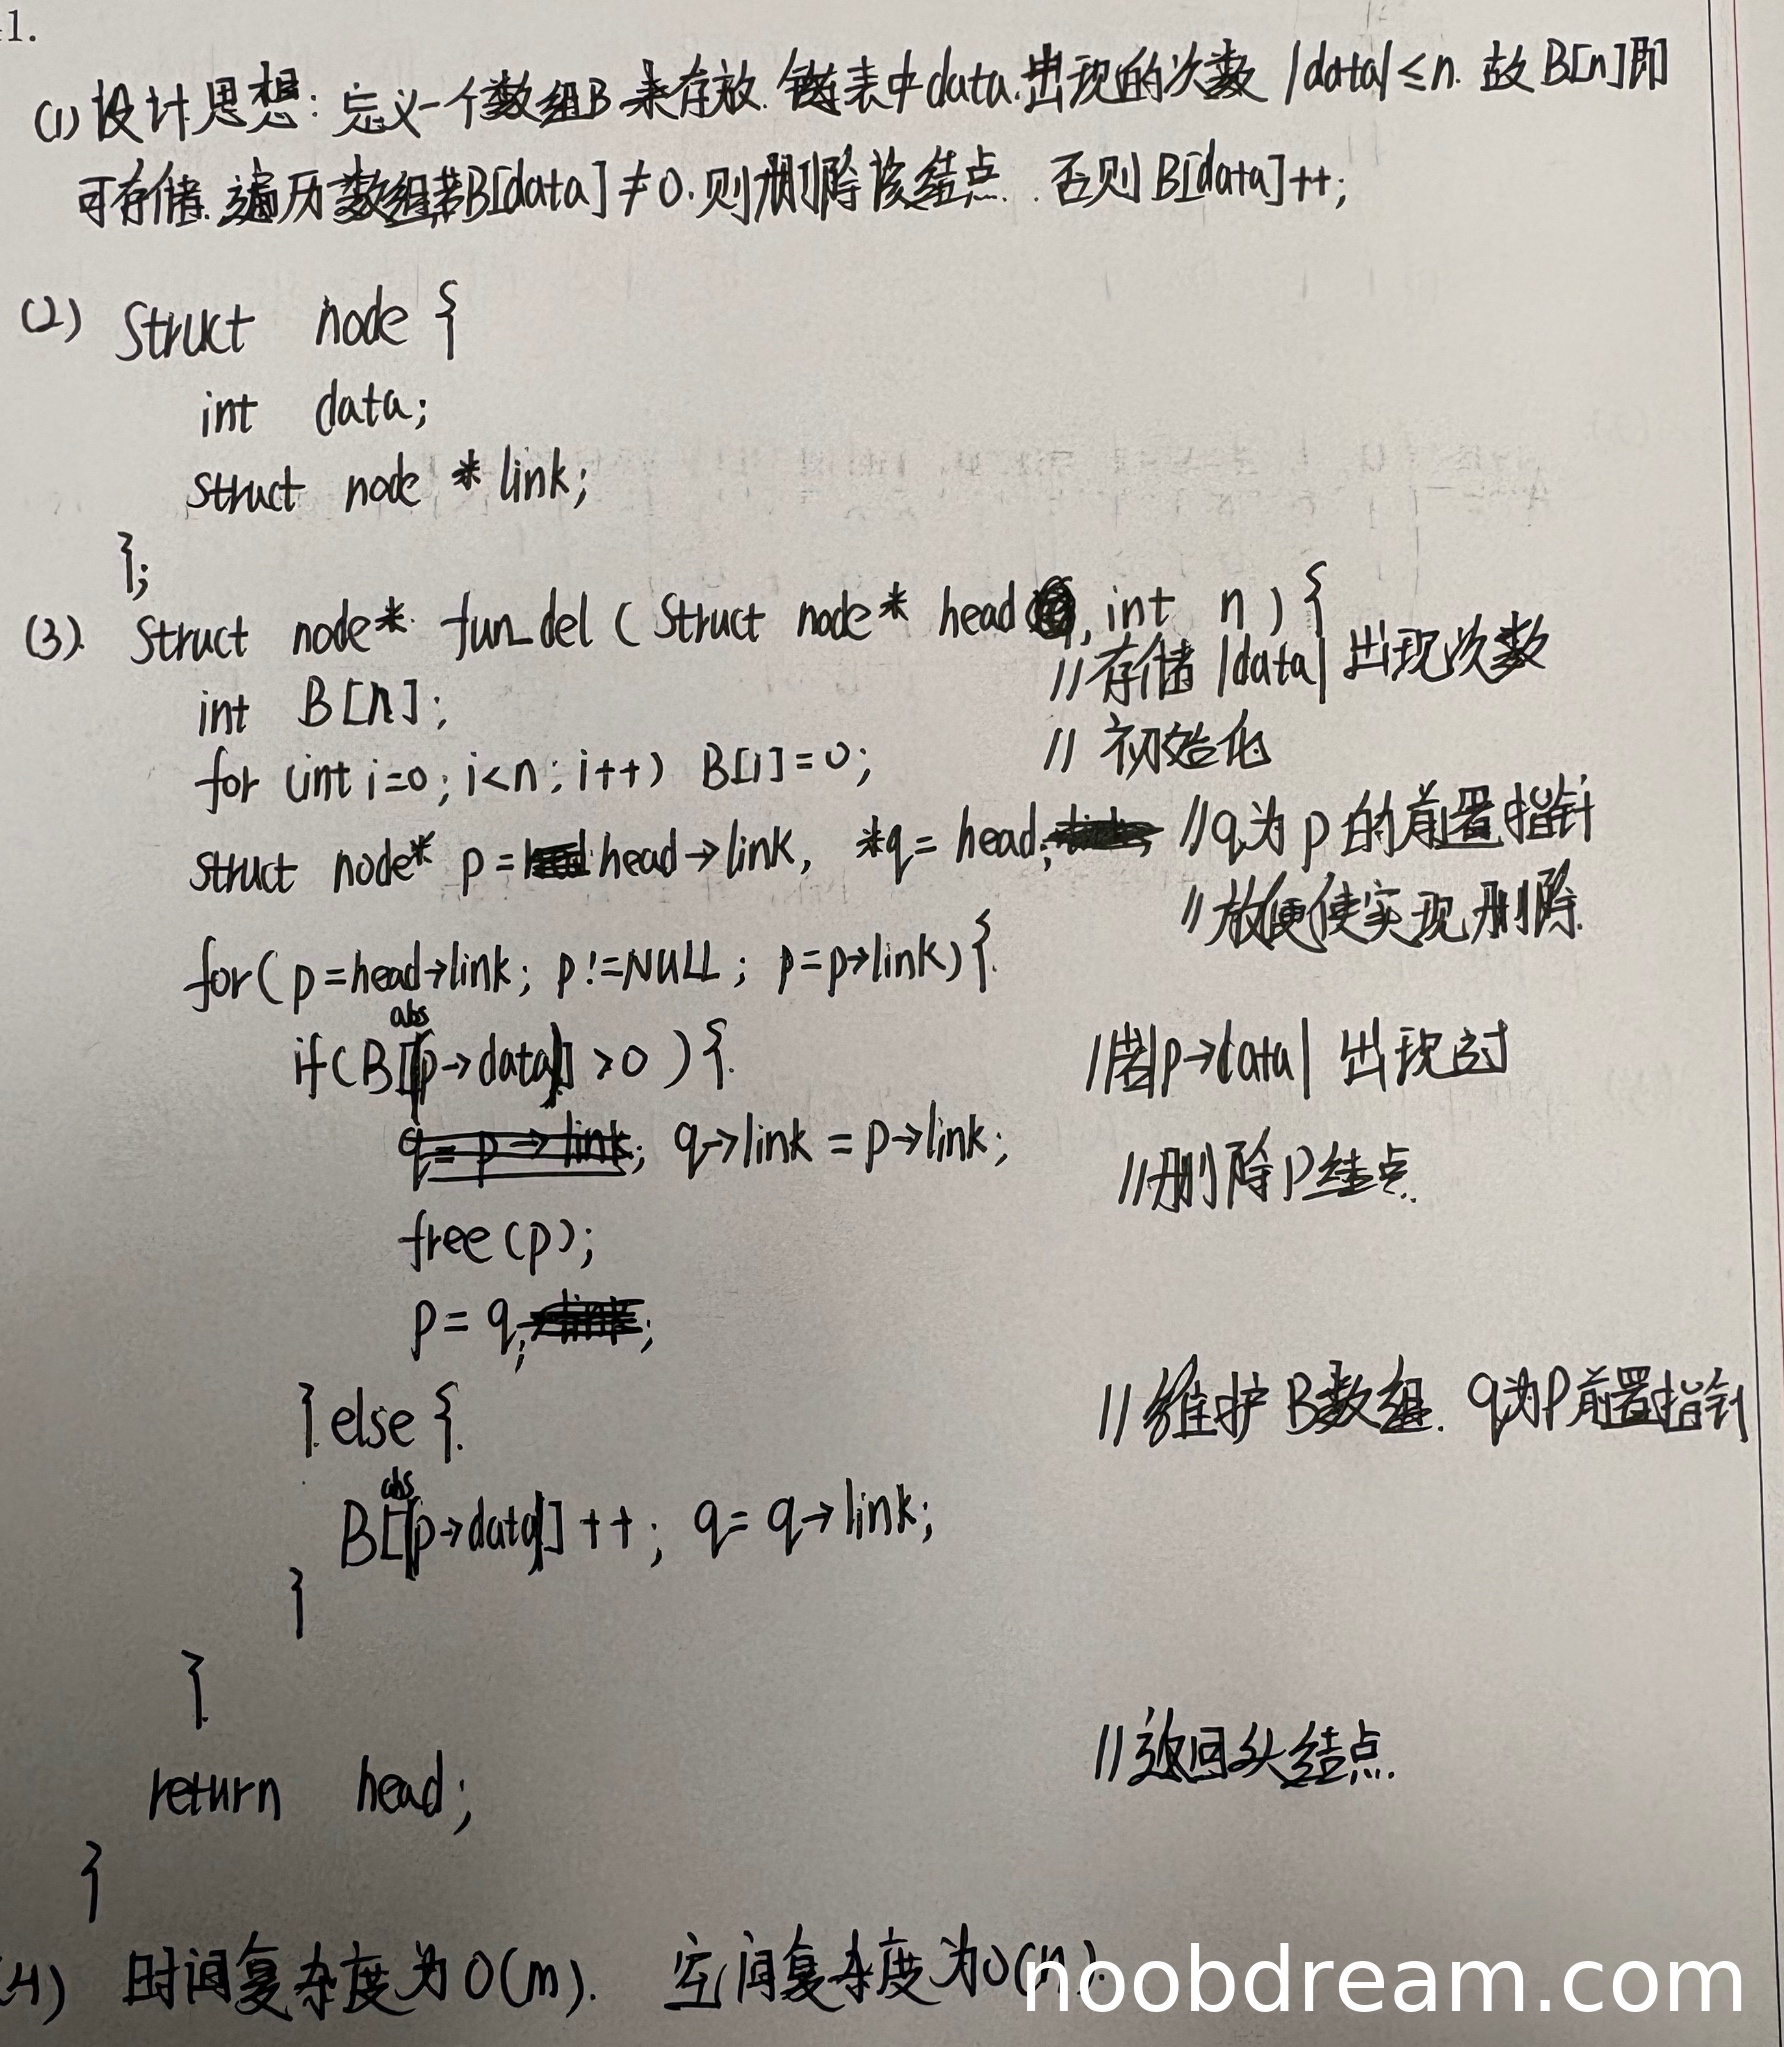 1.
(1) 设计思想: 定义一个数组B来存放.链表中data.出现的次数 |data|≤n. 故B[n]即
可存储.遍历数组若B[data]≠0.则删除该结点. 否则B[data]++;
(2) Struct node {
int data;
struct node * link;
};
(3). Struct node* fun_del ( Struct node* head, int n ) {
int B[n]; //存储 |data| 出现次数
for (int i=0; i<n; i++) B[i]=0; // 初始化
struct node* p = head→link, *q = head; //q为p的前置指针
//放便使实现删除.
for( p=head→link; p!=NULL; p=p→link){
if(B[abs(p→data)] >0 ){ //若|p→data| 出现过
q = p → link; q→link = p→link; //删除P结点.
free(p);
p = q;
} else {. //维护B数组. q为P前置指针
B[abs(p→data)] ++; q= q→link;
}
}
return head; //返回头结点.
}
(4) 时间复杂度为O(m). 空间复杂度为O(n).
noobdream.com